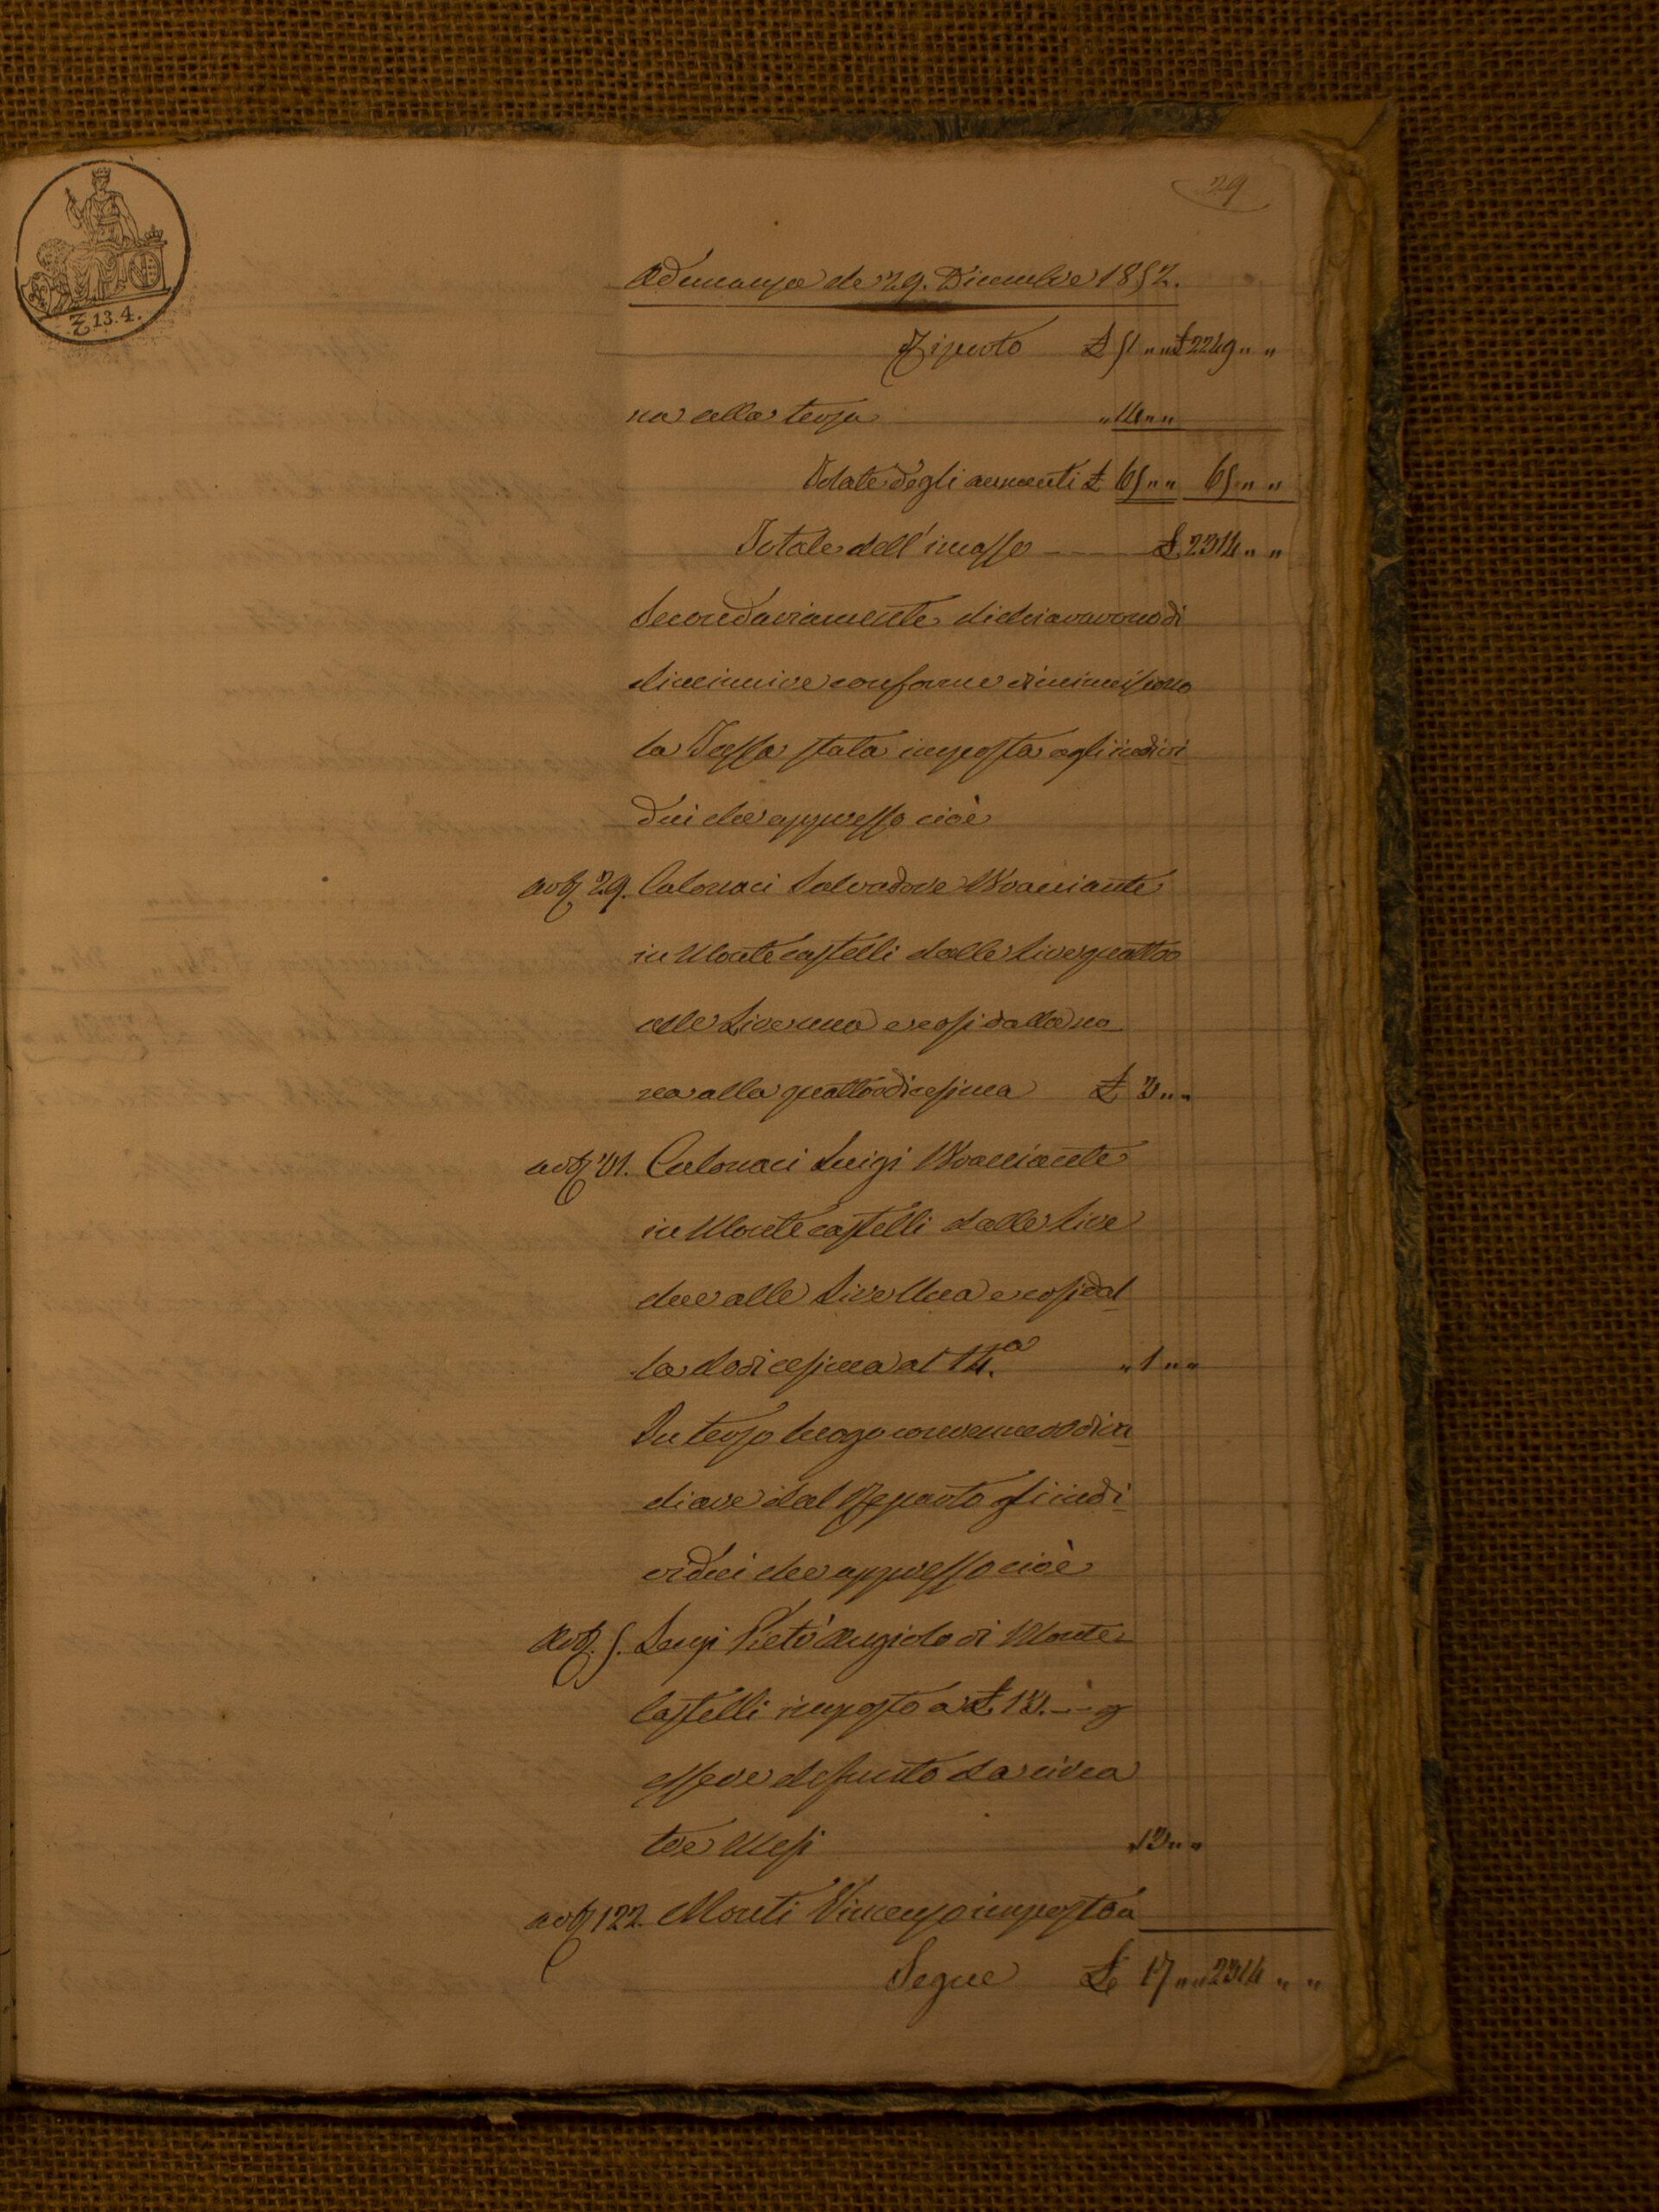 29
₤ 13.4.
Adunanza de 29. Dicembre 1852.
Riporto £ 51 „ „ £ 2249 „ „
na alla terza „ 14 „ „
Totale degli aumenti £ 65 „ „ 65 „ „
Totale dell'incasso £ 2314 „ „
Secondariamente dichiararono di
diminuire conforme diminuiscono
la Tassa stata imposta agli indivi
dui che appresso cioè
art. 29. Calonaci Salvadore Bracciante
in Monte castelli dalle Lire quattro
alle Lire una e cosi dalla no
na alla quattordicesima £ 3 „ „
art. 31. Calonaci Luigi Bracciante
in Monte castelli dalle Lire
due alle Lire Una e cosi dal
la dodicesima al 14.a „ 1 „ „
In terzo luogo convennero di ra
diare dal Reparto gli indi
vidui che appresso cioè
Art. 5. Pietro Angiolo di Monte
Castelli imposto a £ 13. -- p
essere defunto da circa
tre Mesi „ 13 „ „
art. 122. Monti Vincenzo imposto a
Segue £ 17 „ „ 2314 „ „